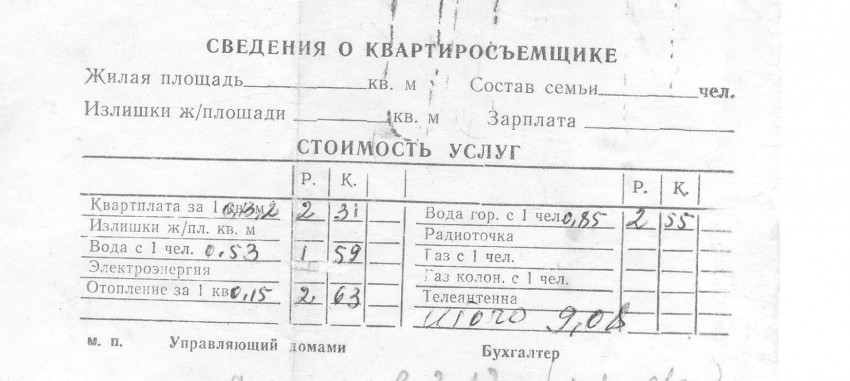 СВЕДЕНИЯ О КВАРТИРОСЪЕМЩИКЕ
Жилая площадь кв. м Состав семьи чел.
Излишки ж/площади кв. м Зарплата
СТОИМОСТЬ УСЛУГ
Р. К. Р. К.
Квартплата за 1 кв. м 2 31 Вода гор. с 1 чел. 0,85 2 55
Излишки ж/пл. кв. м Радиоточка
Вода с 1 чел. 0,53 1 59 Газ с 1 чел.
Электроэнергия Газ колон. с 1 чел.
Отопление за 1 кв 0,15 2 63 Телеантенна
Итого 9,08
м. п. Управляющий домами Бухгалтер